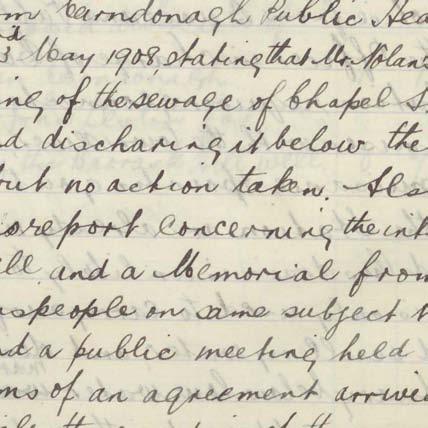 m Carndonagh Public Hea
3rd May 1908, stating that Mr. Nolan's
ing of the sewage of Chapel S
d discharing it below the
but no action taken. Als
o report concerning the int
ill and a Memorial from
nspeople on same subject
nd a public meeting held
ms of an agreement arrive